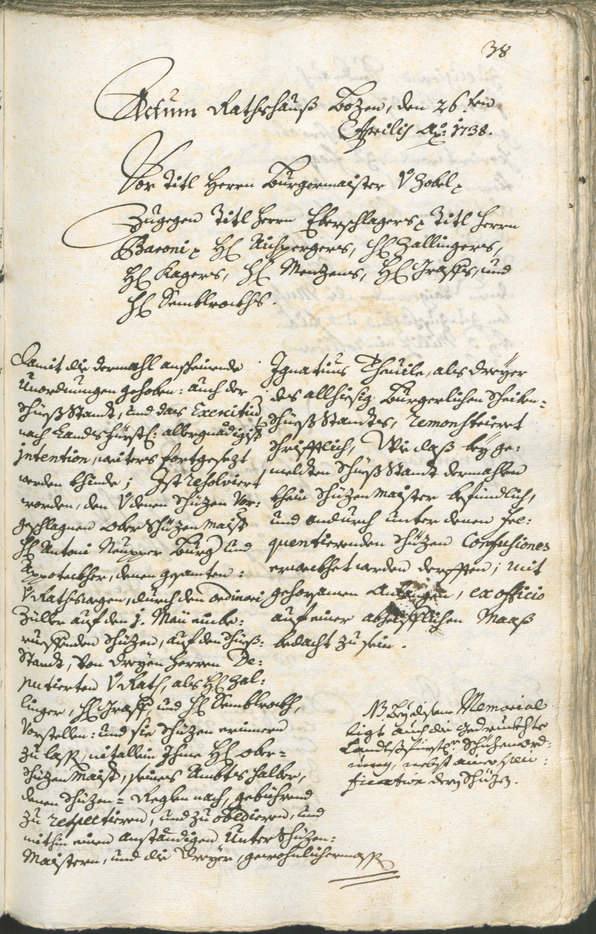 38
Actum Rathshauß Bozen, den 26.ten
Aprilis Ao: 1738.
Vor Titl Herrn Burgermaister V Zobel
Zugegen Titl Herrn Eberschlagers, Titl Herrn
Baroni, H: Aichpergers, H: Zallingers,
H: Kagers, H: Menzens, H: Graffs, und
H: Semblrochs.
Damit die dermahl anscheinende
Unordnungen gehoben: auch der
Schüß Standt, und das Exercitium
nach Landsfürstl: allergnädigist
intention, weiters fortgesezt
werden khinde; Ist resolviert
worden, den V denen Schüzen Vor:
geschlagnen ober Schüzen Maist
H: Antoni Burg: und
Appoteckher, denen gesamten:
V Raths wegen, durch den ordinari
Ziller auf den j. Maii einbe:
rueffenden Schüzen, auf den Schüß:
Standt, von dreyen Herren De:
putierten V Rath, als H: Zal:
linger, H: Graff und H: Semblroch,
Vorstellen: und sie Schüzen erinnern
zu lass, mit allein Ihme H: ober-
Schüzen Maist, seines Ambts halber,
denen Schüzen = Reglen nach, gebührend
zu respectieren, und zu obedieren, und
mithin einen anständigen Unter Schüzen:
Maistern, und die Dreyer, gewohnlichermass
Ignatius Theüle, als Dreyer
des allhiesig Burgerlichen Scheiben-
Schüß Standts, remonstrieret
schrifftlich, Wie daß bey ge:
melten Schüß Standt dermahlen
khein Schüzen Maister befindlich,
und andurch unter denen fre:
quentierenden Schüzen Confusiones
erweckhet werden derfften; mit
gehorsamen Anlangen, ex officio
auf einer abhilfflichen Maaß
bedacht zu sein.
NB bey disem Memorial
ligt auch die gedruckhte
Landtsfürstl: Schüzenord:
nung, nebst einer
der Schüzen.